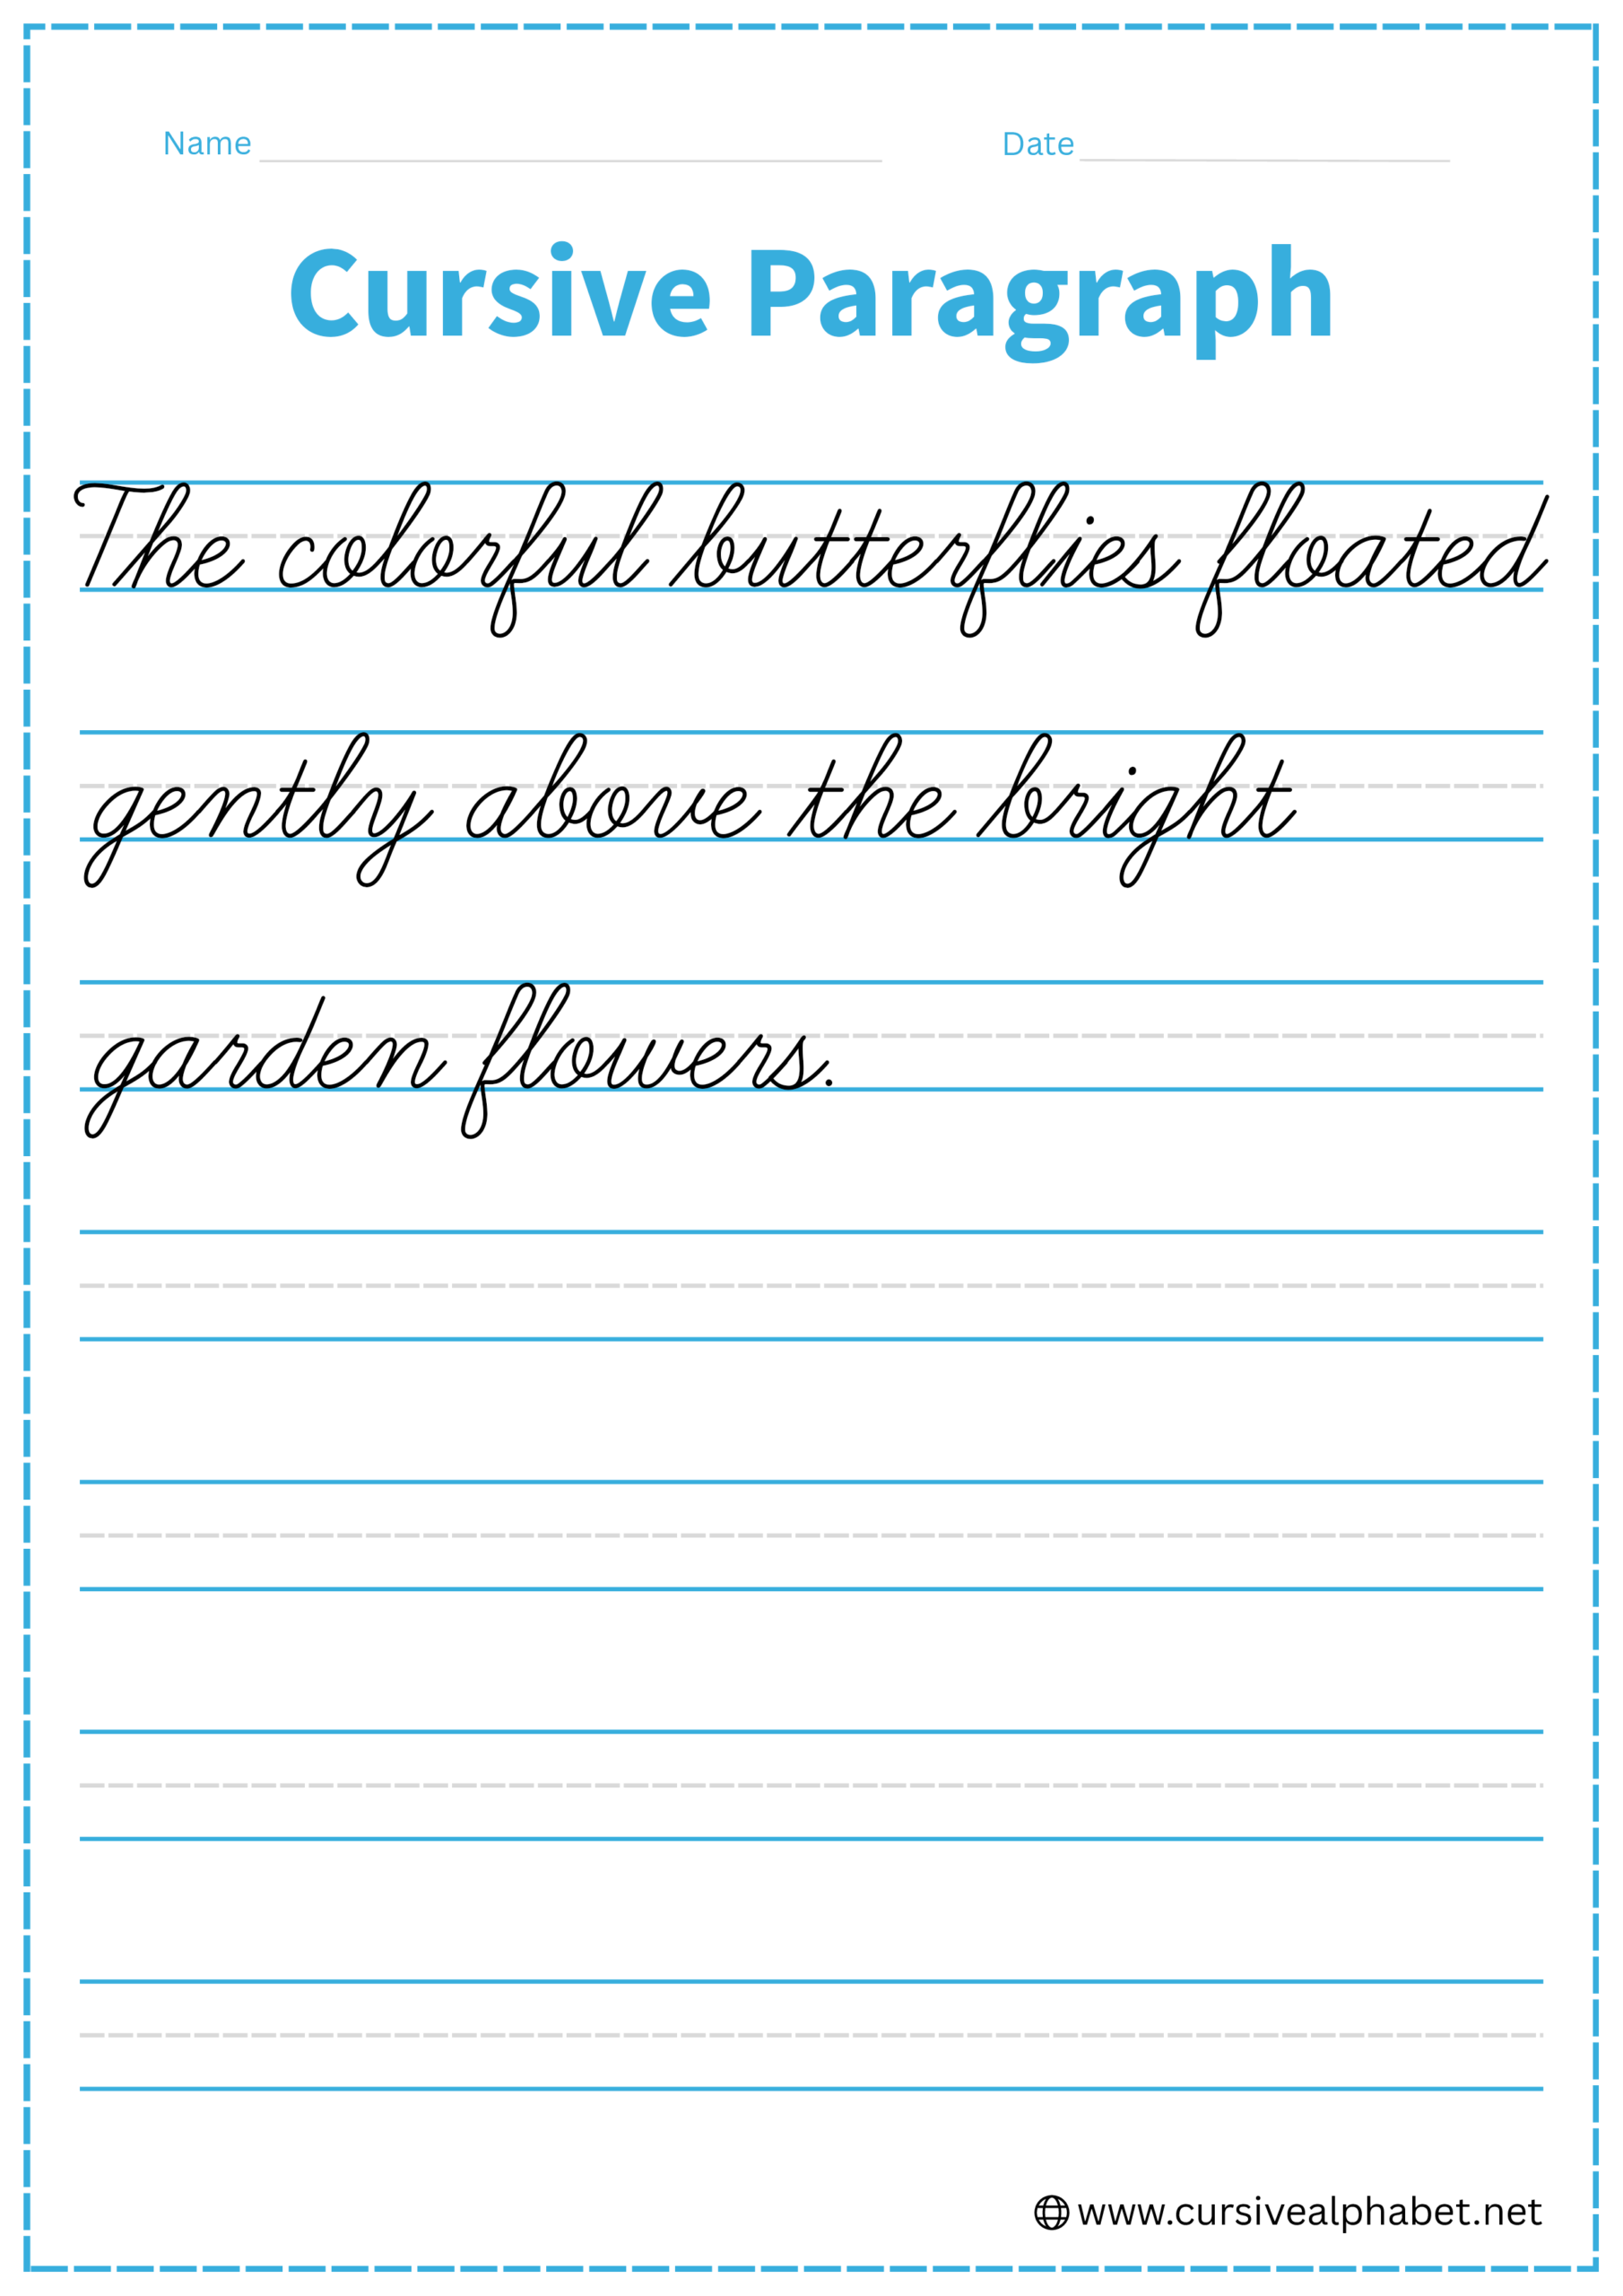 Name Date
Cursive Paragraph
The colorful butterflies floated
gently above the bright
garden flowers.
www.cursivealphabet.net